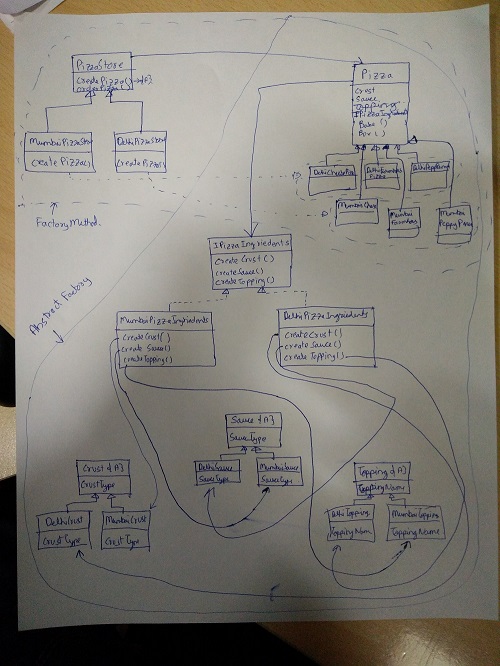 PizzaStore
createPizza() {A}
orderPizza()
MumbaiPizzaStor
createPizza()
DelhiPizzaStor
createPizza()
Pizza
Crust
Sauce
Topping
IPizzaIngrients
Bake()
Box()
Delhi Pizza
Mumbai
Mumbai
Mumbai
Factory Method.
Abstract Factory
IPizzaIngrients
createCrust()
createSauce()
createTopping()
MumbaiPizzaIngrients
createCrust()
create Sauce()
createTopping()
DelhiPizzaIngrients
createCrust()
create Sauce()
create Topping()
Sauce {A}
SauceType
DelhiSauce
SauceType
MumbaiSauce
SauceType
Crust {A}
CrustType
DelhiCrust
CrustType
MumbaiCrust
CrustType
Topping {A}
ToppingName
DelhiTopping
ToppingNam
MumbaiTopping
ToppingName